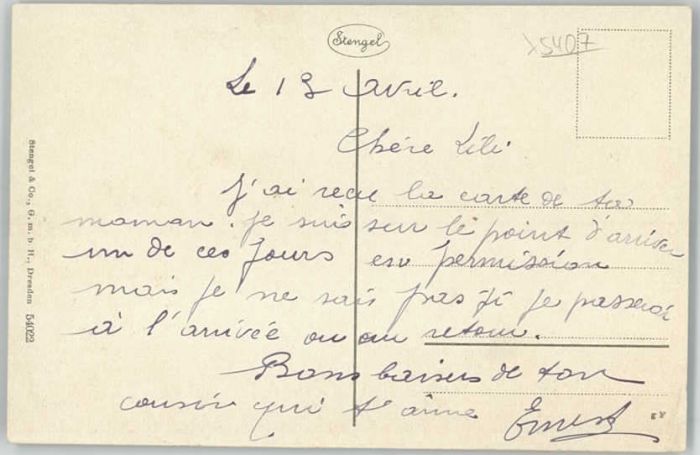 Stengel
X5407
Le 13 Avril.
Chère Lili
J'ai reçu la carte de ta
maman. Je suis sur le point d'arriver
un de ces jours en permission
mais je ne sais pas si je passerai
à l'arrivée ou au retour.
Bons baisers de ton
cousin qui t'aime Ernest
Stengel & Co., G. m. b. H., Dresden 54022